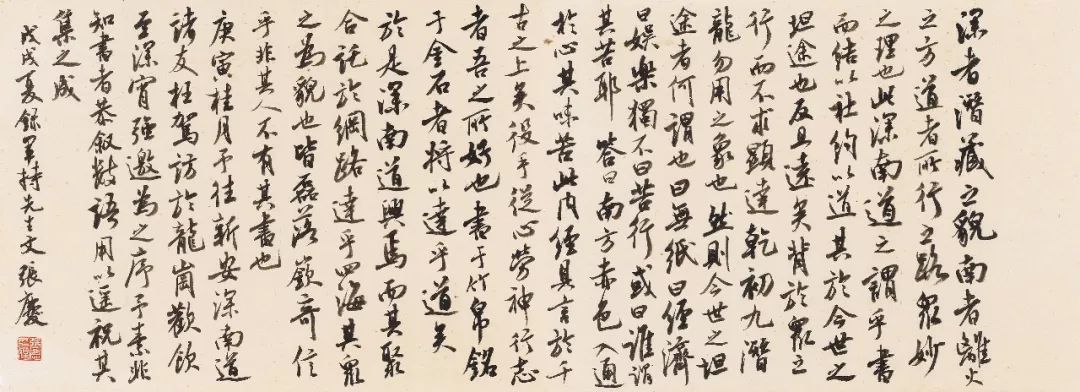 深者潛藏之貌南者離火
之方道者所行之路眾妙
之理也此深南道之謂乎書
而結以社約以道其於今世之
坦途也反且遠矣背於眾之
行而不求顯達乾初九潛
龍勿用之象也然則今世之坦
途者何謂也曰無紙曰經濟
曰娛樂獨不曰苦行或曰誰謂
其苦耶答曰南方赤色入通
於心其味苦此內經具言於千
古之上矣役乎從心勞神行志
者吾之所好也書于竹帛銘
于金石者將以達乎道矣
於是深南道興焉而其聚
合託於網路達乎四海其眾
之為貌也皆磊落嶔奇信
乎非其人不有其書也
庚寅桂月予往新安深南道
諸友枉駕訪於龍崗歡飲
至深宵強邀為之序予素非
知書者恭敘數語用以遥祝其
集之成
戊戌夏錄軍持先生文張慶